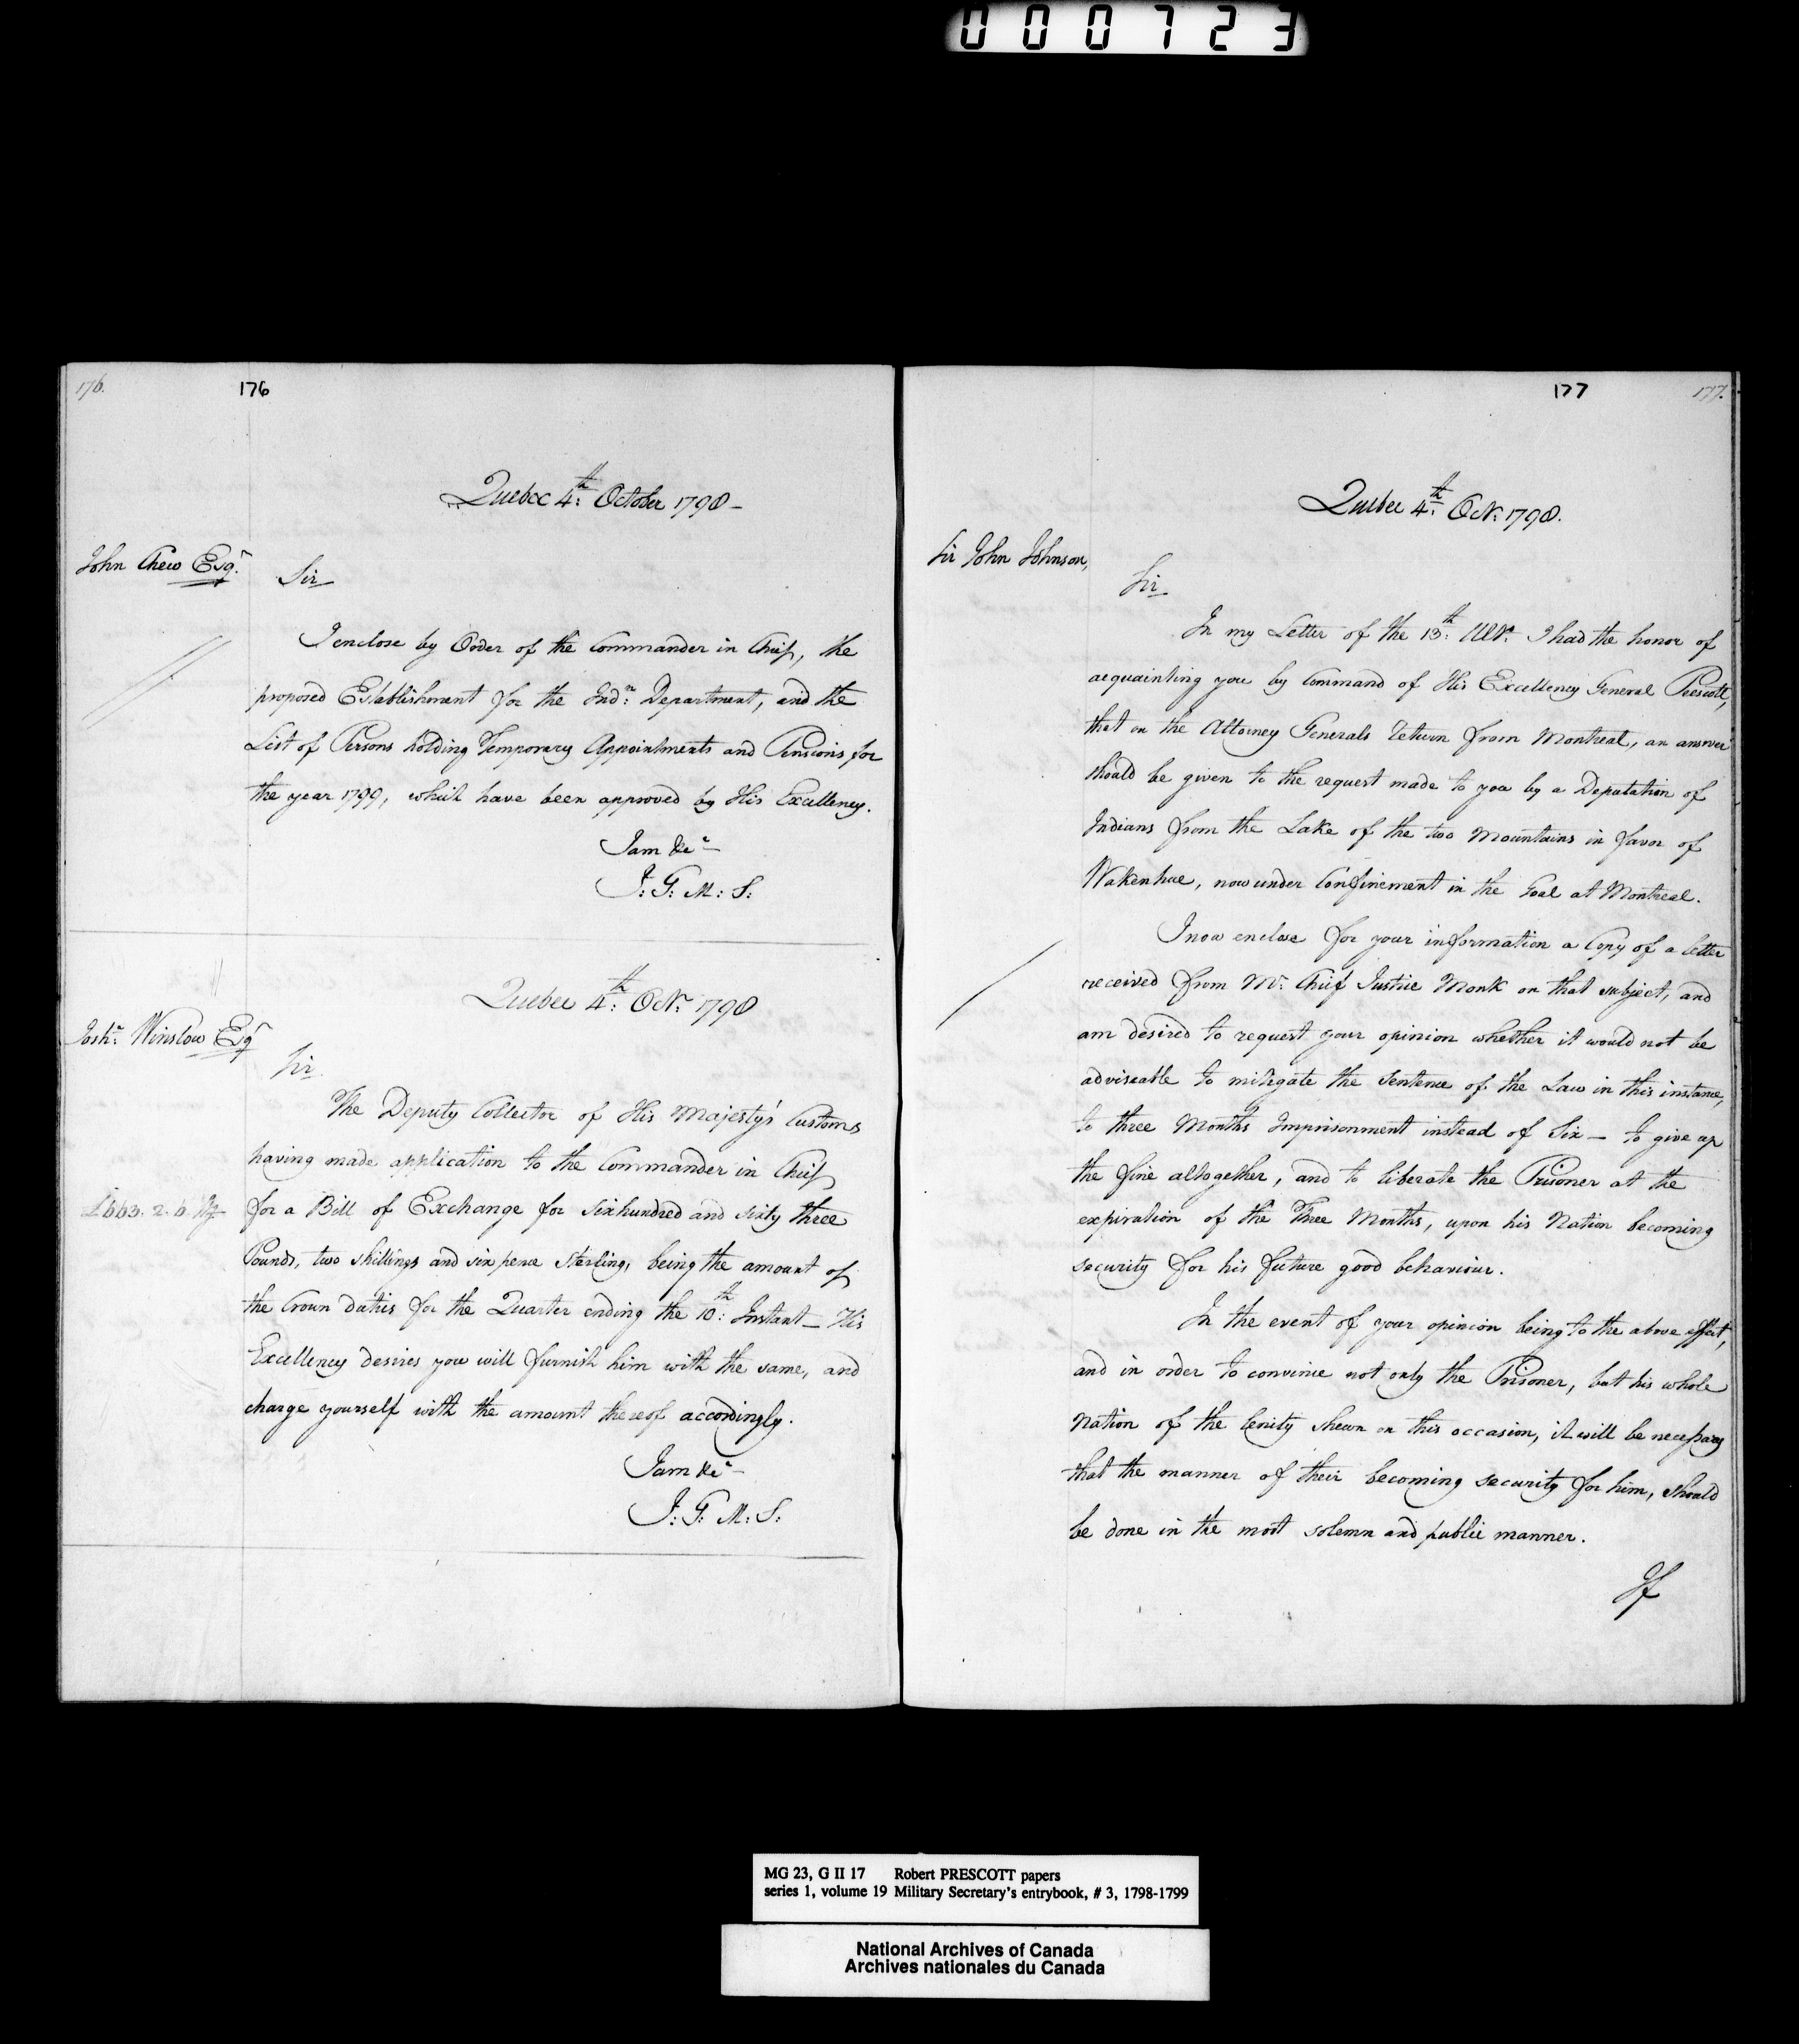 000723
176. 176
Quebec 4th: October 1798 -
John Chew Esqr.
Sir
I enclose by Order of the Commander in Chief, the
proposed Establishment for the Indn: Department, and the
List of Persons holding Temporary Appointments and Pensions for
the year 1799, which have been approved by His Excellency.
I am &c -
J: G: M: S:
Quebec 4th: Octr. 1798
Josha: Winslow Esqr
Sir
The Deputy Collector of His Majesty's Customs
having made application to the Commander in Chief
£663. 2. 6 Stg
for a Bill of Exchange for six hundred and sixty three
Pounds, two shillings and six pence Sterling, being the amount of
the Crown duties for the Quarter ending the 10th: Instant - His
Excellency desires you will furnish him with the same, and
charge yourself with the amount thereof accordingly.
I am &c -
J: G: M: S:
177 177.
Quebec 4th: Octr: 1798.
Sir John Johnson,
Sir
In my Letter of the 13th: Ulto. I had the honor of
acquainting you by Command of His Excellency General Prescott,
that on the Attorney Generals return from Montreal, an answer
should be given to the request made to you by a Deputation of
Indians from the Lake of the two Mountains in favor of
, now under Confinement in the Goal at Montreal.
I now enclose for your information a Copy of a letter
received from Mr. Chief Justice Monk on that subject, and
am desired to request your opinion whether it would not be
adviseable to mitigate the Sentence of the Law in this instance,
to three Months Imprisonment instead of Six - to give up
the fine altogether, and to liberate the Prisoner at the
expiration of the Three Months, upon his Nation becoming
security for his future good behaviour.
In the event of your opinion being to the above effect,
and in order to convince not only the Prisoner, but his whole
Nation of the lenity shewn on this occasion, it will be necessary
that the manner of their becoming security for him, should
be done in the most solemn and public manner.
If
MG 23, G II 17 Robert PRESCOTT papers
series 1, volume 19 Military Secretary's entrybook, # 3, 1798-1799
National Archives of Canada
Archives nationales du Canada